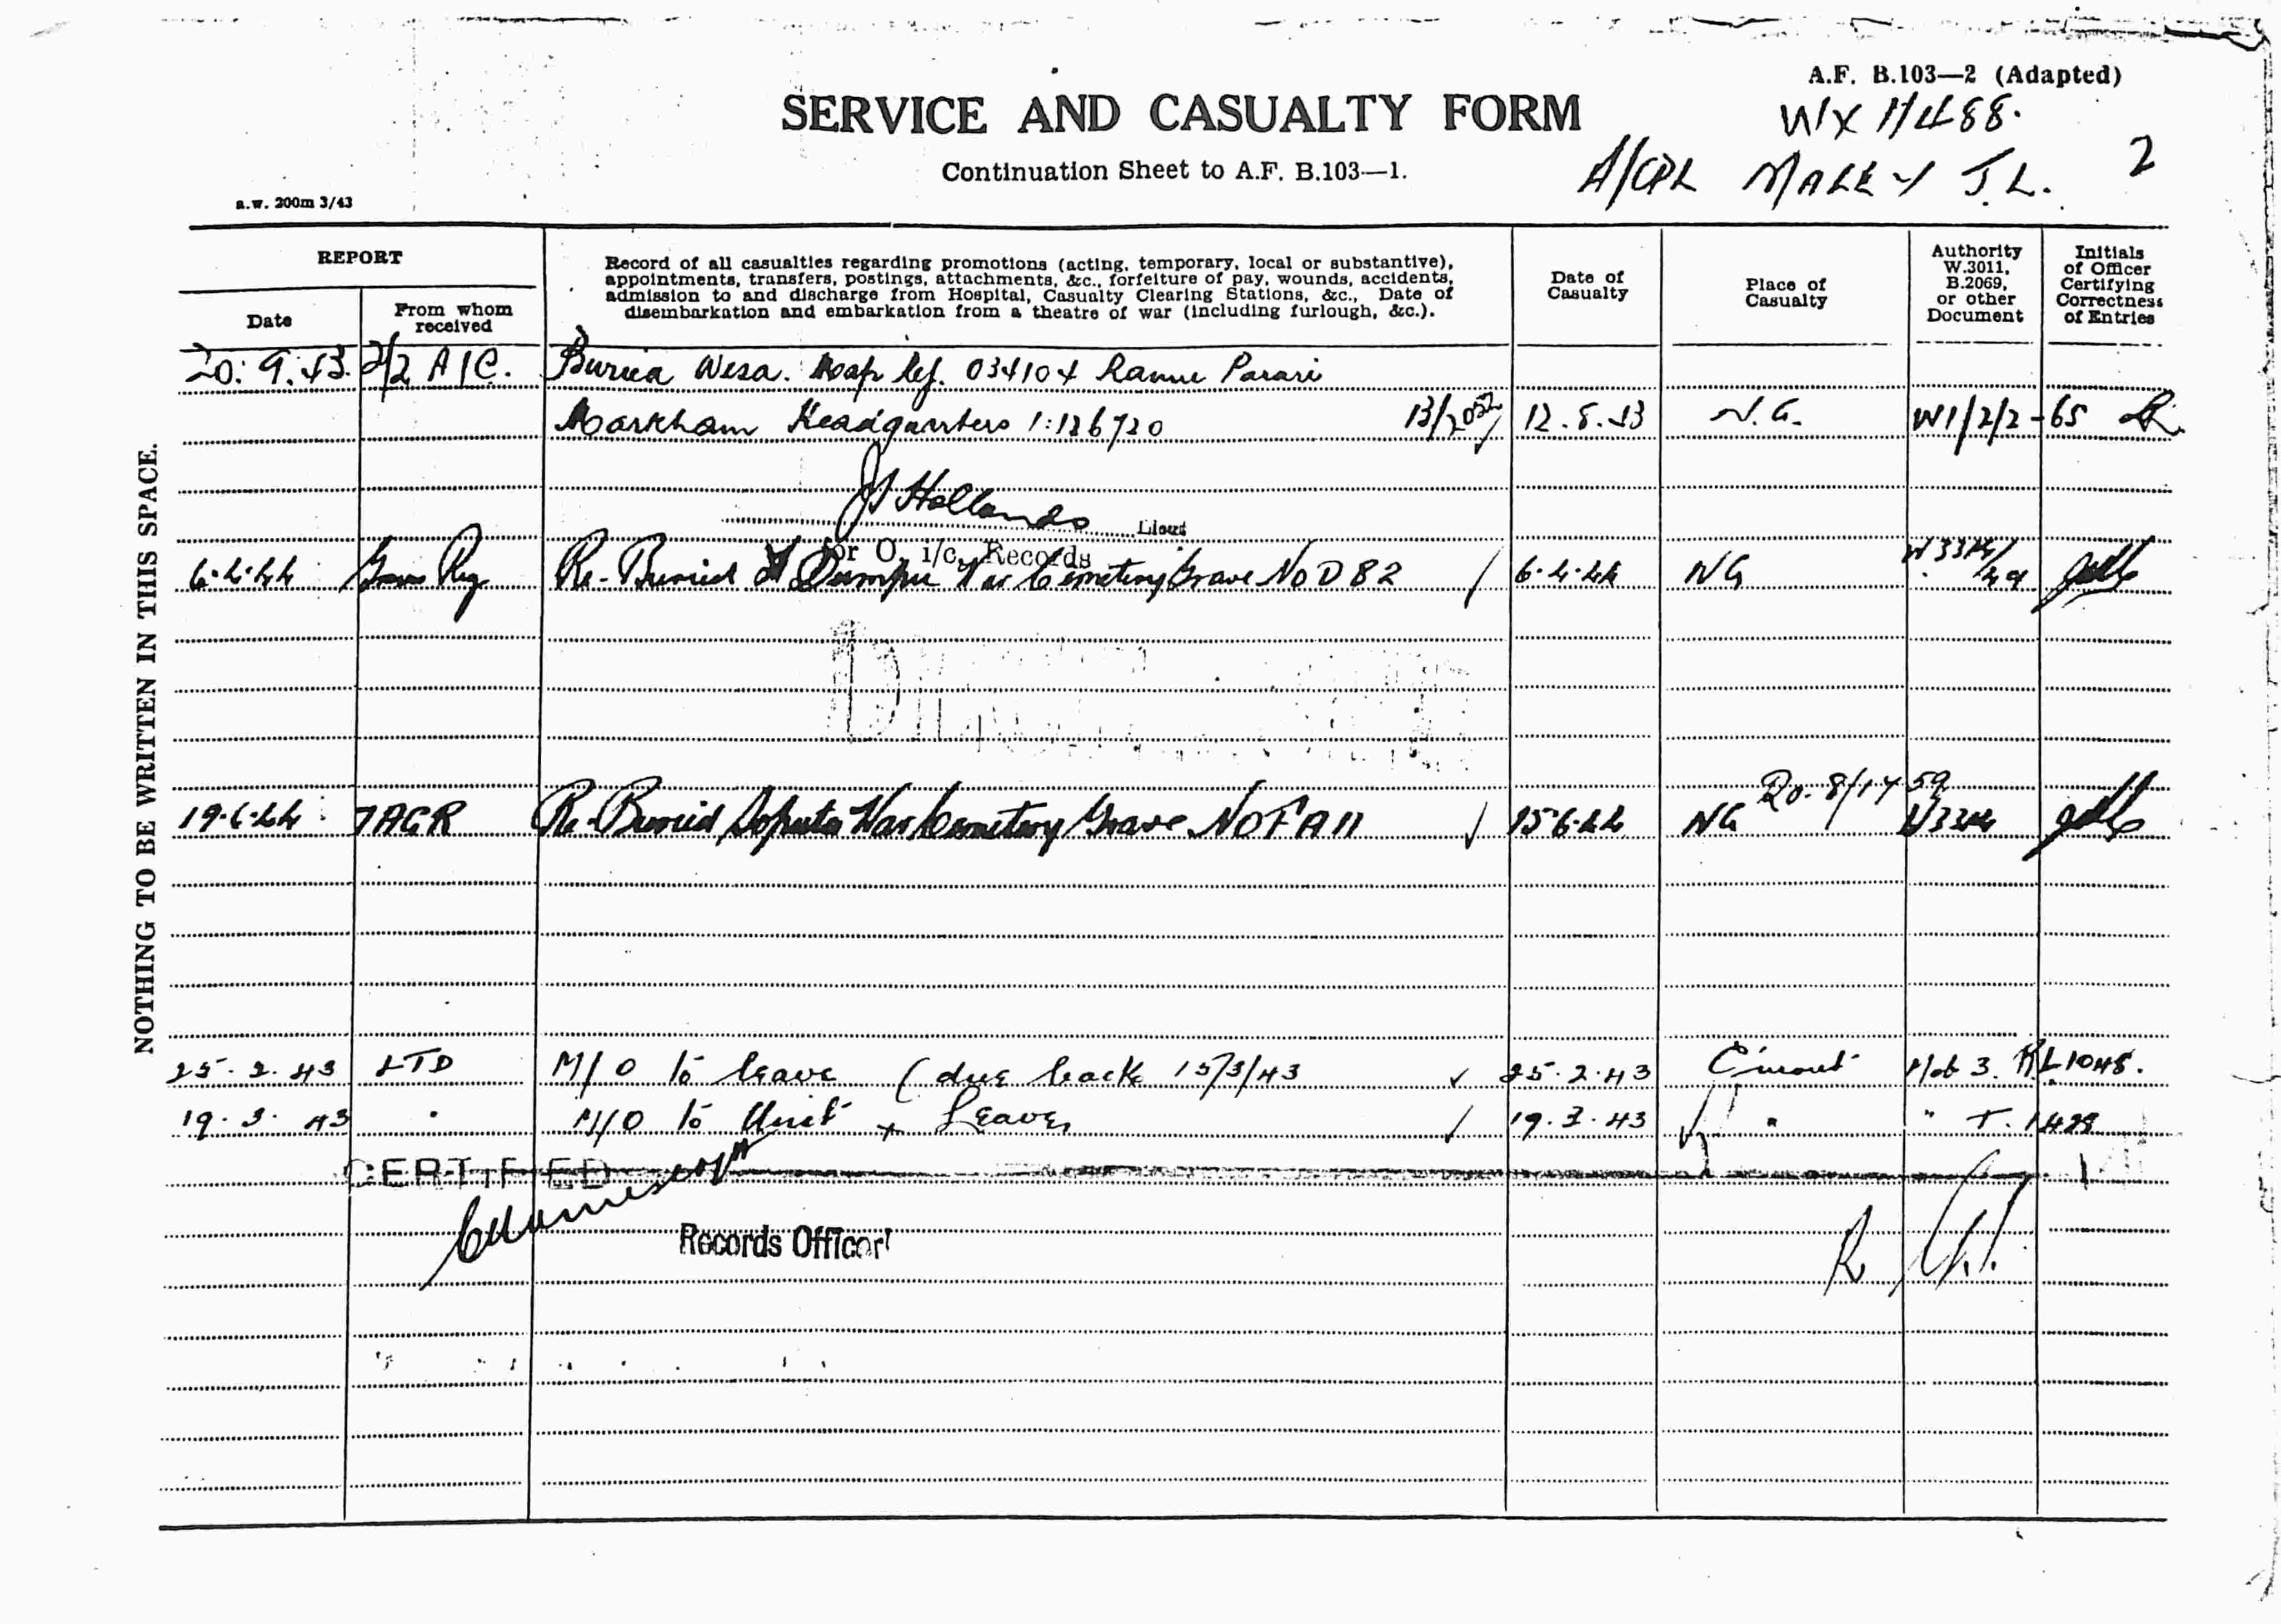 A.F. B.103—2 (Adapted)
SERVICE AND CASUALTY FORM
WX 11488.
Continuation Sheet to A.F. B.103—1.
A/CPL MALEY J.L.
2
a.w. 200m 3/43
NOTHING TO BE WRITTEN IN THIS SPACE.
REPORT
Date
From whom received
Record of all casualties regarding promotions (acting, temporary, local or substantive),
appointments, transfers, postings, attachments, &c., forfeiture of pay, wounds, accidents,
admission to and discharge from Hospital, Casualty Clearing Stations, &c., Date of
disembarkation and embarkation from a theatre of war (including furlough, &c.).
Date of Casualty
Place of Casualty
Authority W.3011, B.2069, or other Document
Initials of Officer Certifying Correctness of Entries
20.9.43 Wesa. Map Ref. 034104
Markham Headquarters 1:126720 N.G. W1/2/2-65
Hollands Lieut
for O. i/c. Records
6.4.44 Re-Buried Dumpu War Cemetery Grave No D 82 6.4.44 NG
19.6.44 Re-Buried Soputa War Cemetery Grave No 15.6.44 NG
25.2.43 LTD M/O to leave (due back 15/3/43 25.2.43 RL1048.
19.3.43 M/O to Unit Leave 19.3.43 " " T.
CERTIFIED
Records Officer